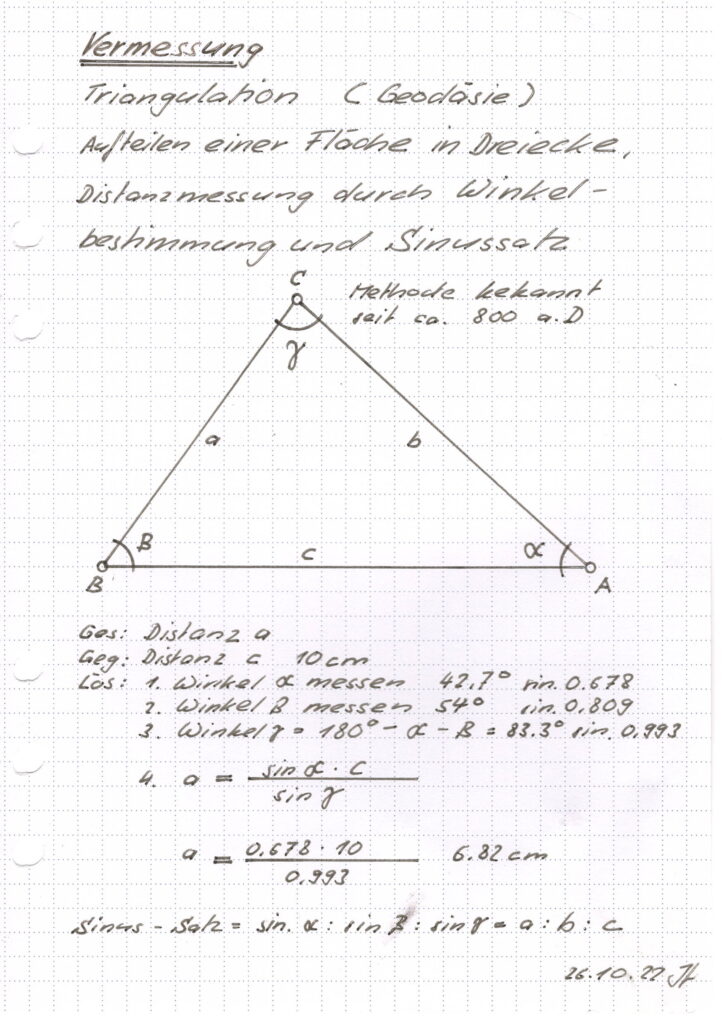 Vermessung
Triangulation (Geodäsie)
Aufteilen einer Fläche in Dreiecke,
Distanzmessung durch Winkel-
bestimmung und Sinussatz
C
Methode bekannt
seit ca. 800 a.D
γ
a
b
β
c
α
B
A
Ges: Distanz a
Geg: Distanz c 10 cm
Lös: 1. Winkel α messen 42,7° sin. 0.678
2. Winkel β messen 54° sin. 0,809
3. Winkel γ = 180° - α - β = 83.3° sin. 0,993
4. a = sin α · c
sin γ
a = 0.678 · 10 6.82 cm
0,993
Sinus-Satz = sin. α : sin β : sin γ = a : b : c
26.10.22